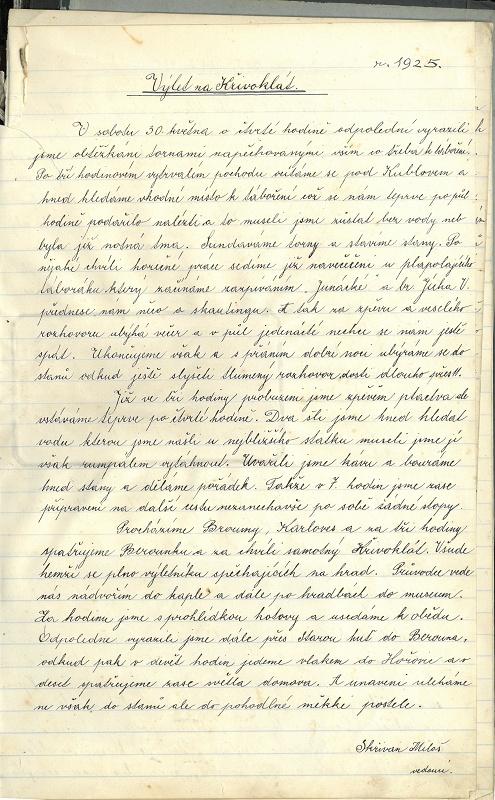 r. 1925.
Výlet na Křivoklát.
V sobotu 30 května o čtvrté hodině odpolední vyrazili
jsme obtěžkáni tornami napěchovanými vším co třeba k táboření.
Po tří hodinovem vytrvalem pochodu ocitáme se pod Kublovem a
hned hledáme vhodné místo k táboření což se nam teprve po půl
hodině podařilo nalézti a to museli jsme zůstat bez vody neb
byla již notná tma. Sundavame torny a stavíme stany. Po
nějaké chvíli horečné práce sedíme již navečeřeni u plapolajícího
táboráku který začínáme zazpíváním „Junácké" a br. Juha V.
přednese nam něco o skautingu. A tak za zpěvu a veselého
rozhovoru ubýhá večer a v půl jedenácté nechce se nam ještě
spát. Ukončujeme však a s přáním dobré noci ubýrame se do
stanů odkud ještě slyšeti tlumený rozhovor dosti dlouho přes 11.
Již ve tři hodiny probuzeni jsme zpěvem ptactva ale
vstáváme teprve po čtvrté hodině. Dva šli jsme hned hledat
vodu kterou jsme našli u nejbližšího statku museli jsme ji
však rumpálem vytáhnout. Uvařili jsme kávu a bouráme
hned stany a děláme pořádek. Takže v 7. hodin jsme zase
připraveni na další cestu nezanechavše po sobě žádné stopy.
Procházíme Broumy, Karloves a za tři hodiny
spatřujeme Berounku a za chvíli samotný Křivoklát. Všude
hemží se plno výletníku spěchajících na hrad. Průvodce vede
nás nadvořím do kaple a dále po hradbách do museum.
Za hodinu jsme s prohlídkou hotovy a usedáme k obědu.
Odpoledne vyrazili jsme dále přes Starou huť do Berouna,
odkud pak v devět hodin jedeme vlakem do Hořovic a v
deset spatřujeme zase světla domova. A unaveni uleháme
ne však do stanů ale do pohodlné měkké postele.
Skřivan Miloš